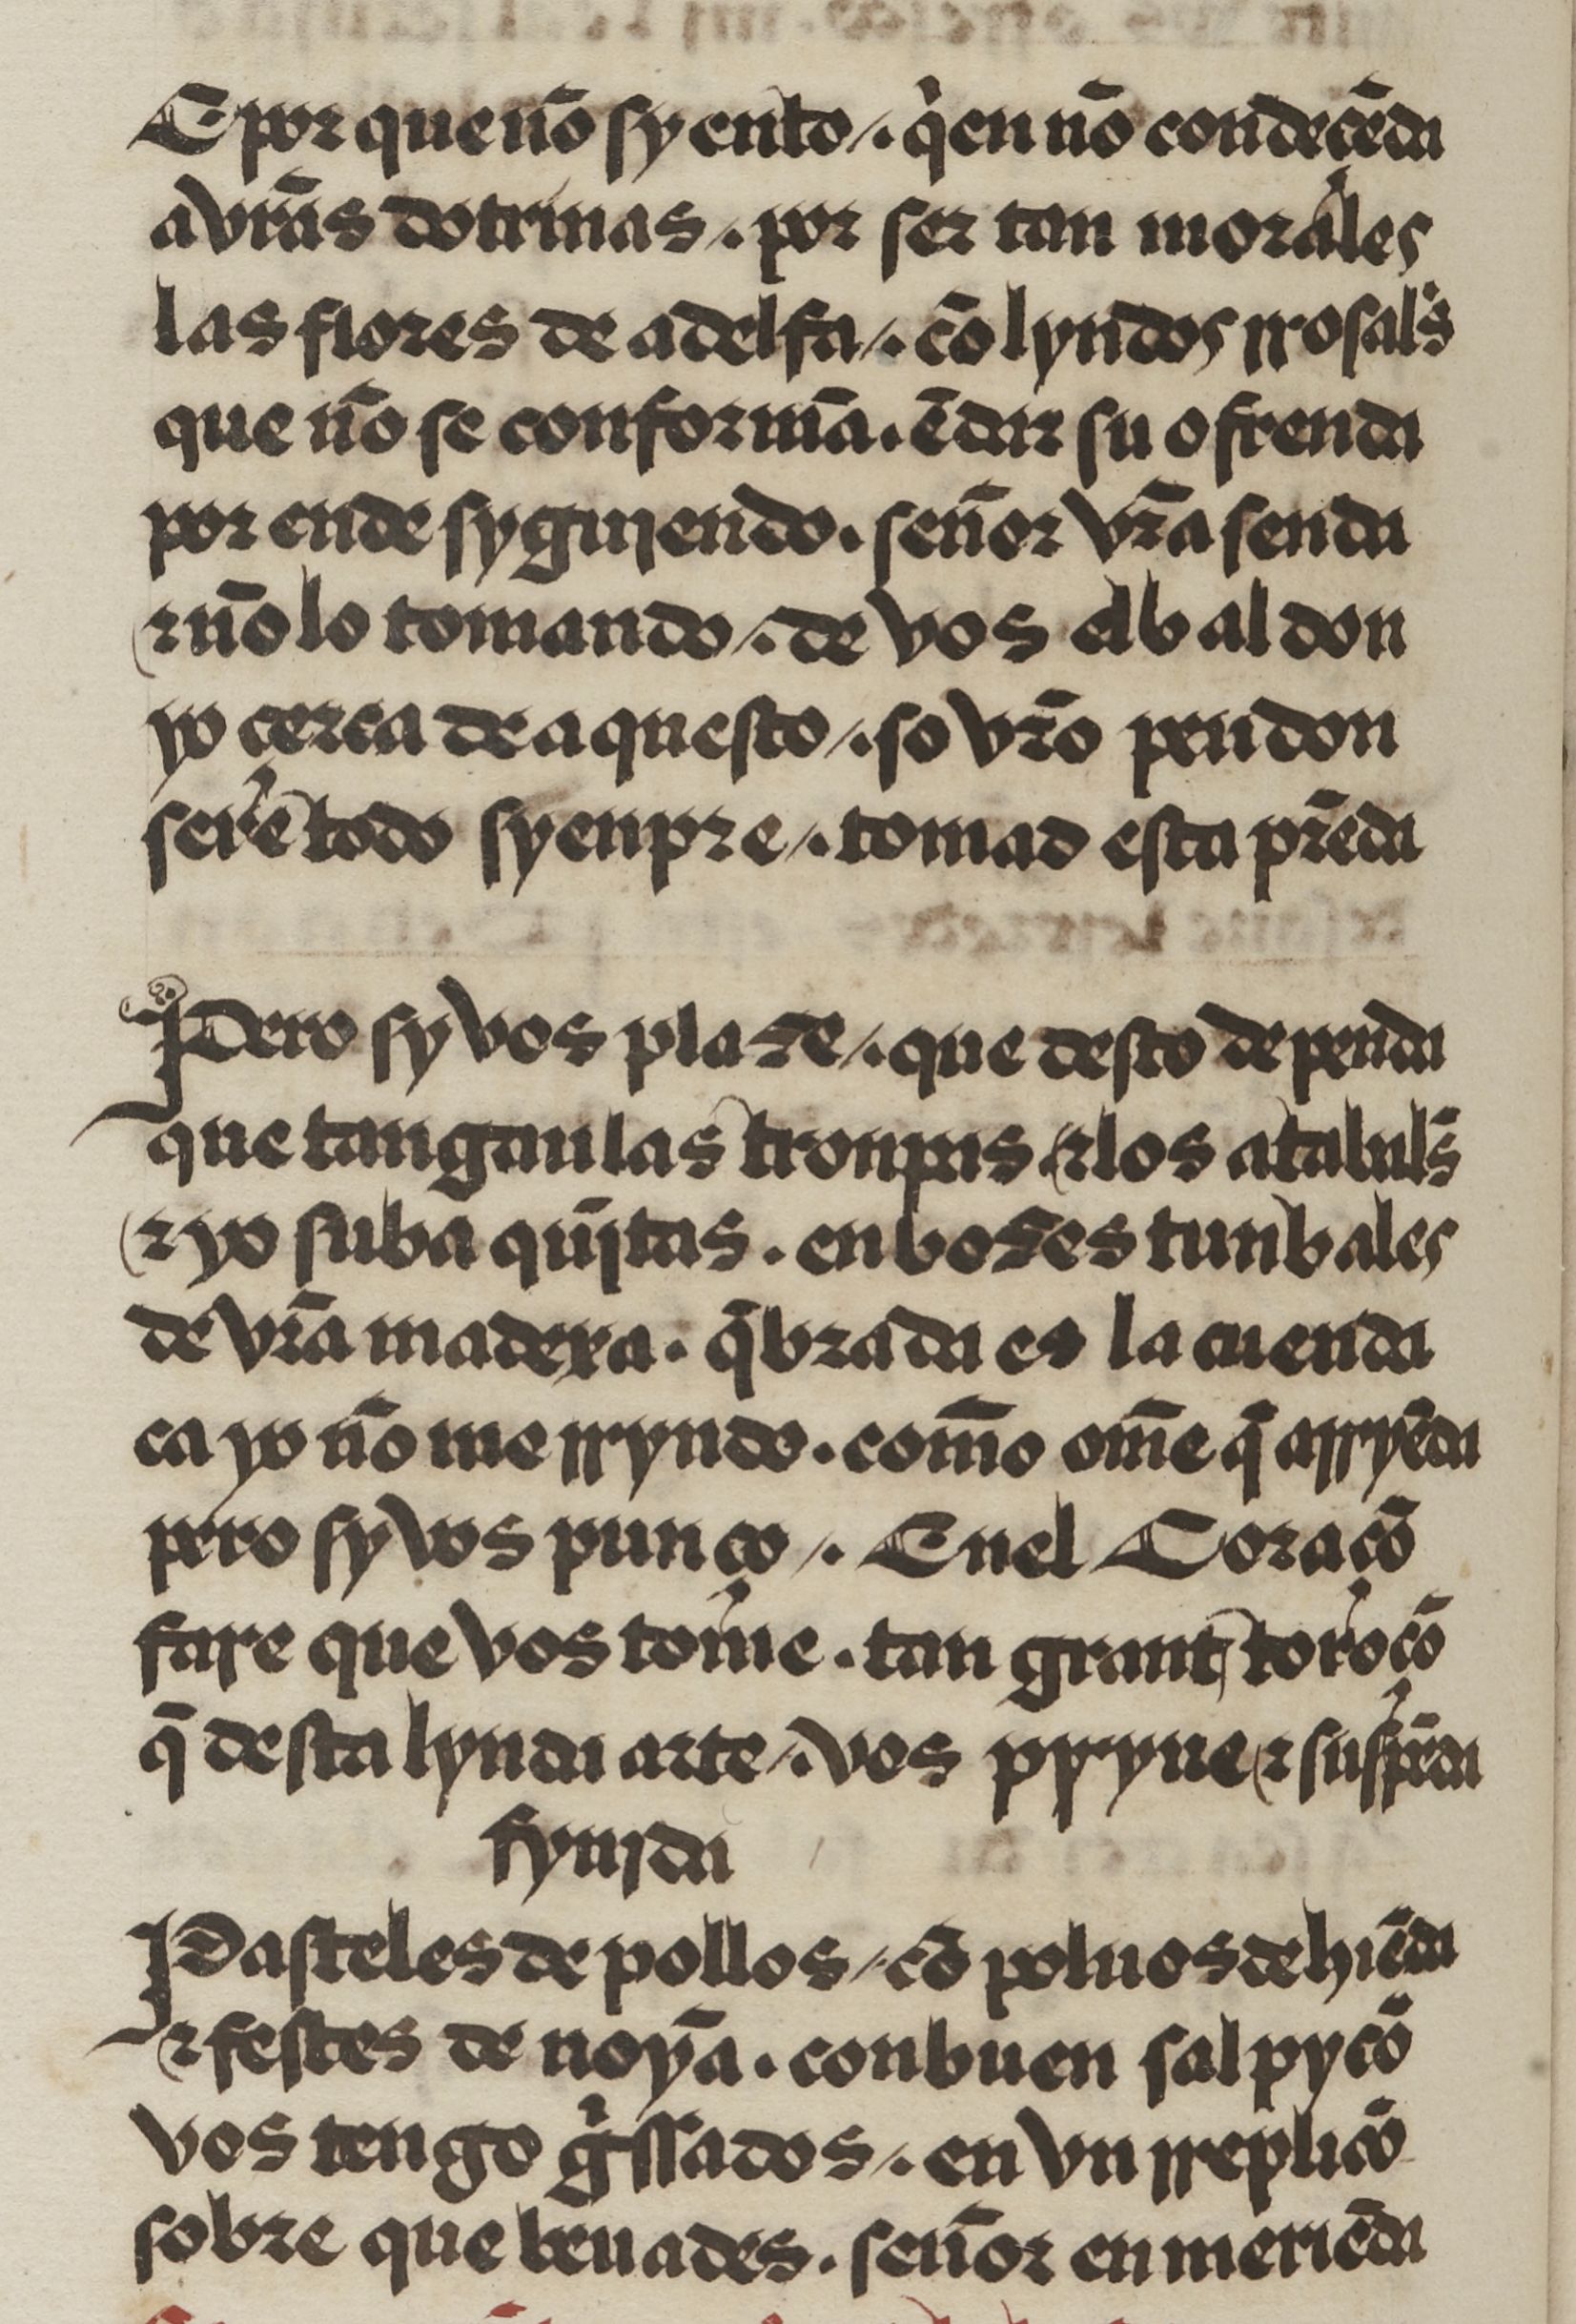 E por que nõ syento /. q̃en nõ condeçẽda
a vr̃as dotrinas /. por ser tan morales
las flores de adelfa /. cõ lyndos rrosal̃s
que nõ se conformã . ẽ dar su ofrenda
por ende syguiendo . señor vr̃a senda
⁊ nõ lo tomando /. de vos el baldon
yo çerca de aquesto /. so vr̃o pendon
sere todo syenpre /. tomad esta prẽda
Pero sy vos plaze /. que desto dependa
que tangan las tronpas ⁊ los atabal̃s
⁊ yo suba quĩtas . en bozes tunbales
de vr̃a madexa . q̃brada es la cuenda
ca yo nõ me rryndo . com̃o om̃e q̃ arryẽda
pero sy vos punço /. En el Coraçõ
fare que vos tome . tan grant toroçõ
q̃ desta lynda arte /. vos pryue ⁊ suspẽda
fynida
Pasteles de pollos / cõ poluos de hiẽda
⁊ festes de noyã . con buen salpycõ
vos tengo g̃ssados /. en vn rreplicõ
sobre que beuades . señor en meriẽda